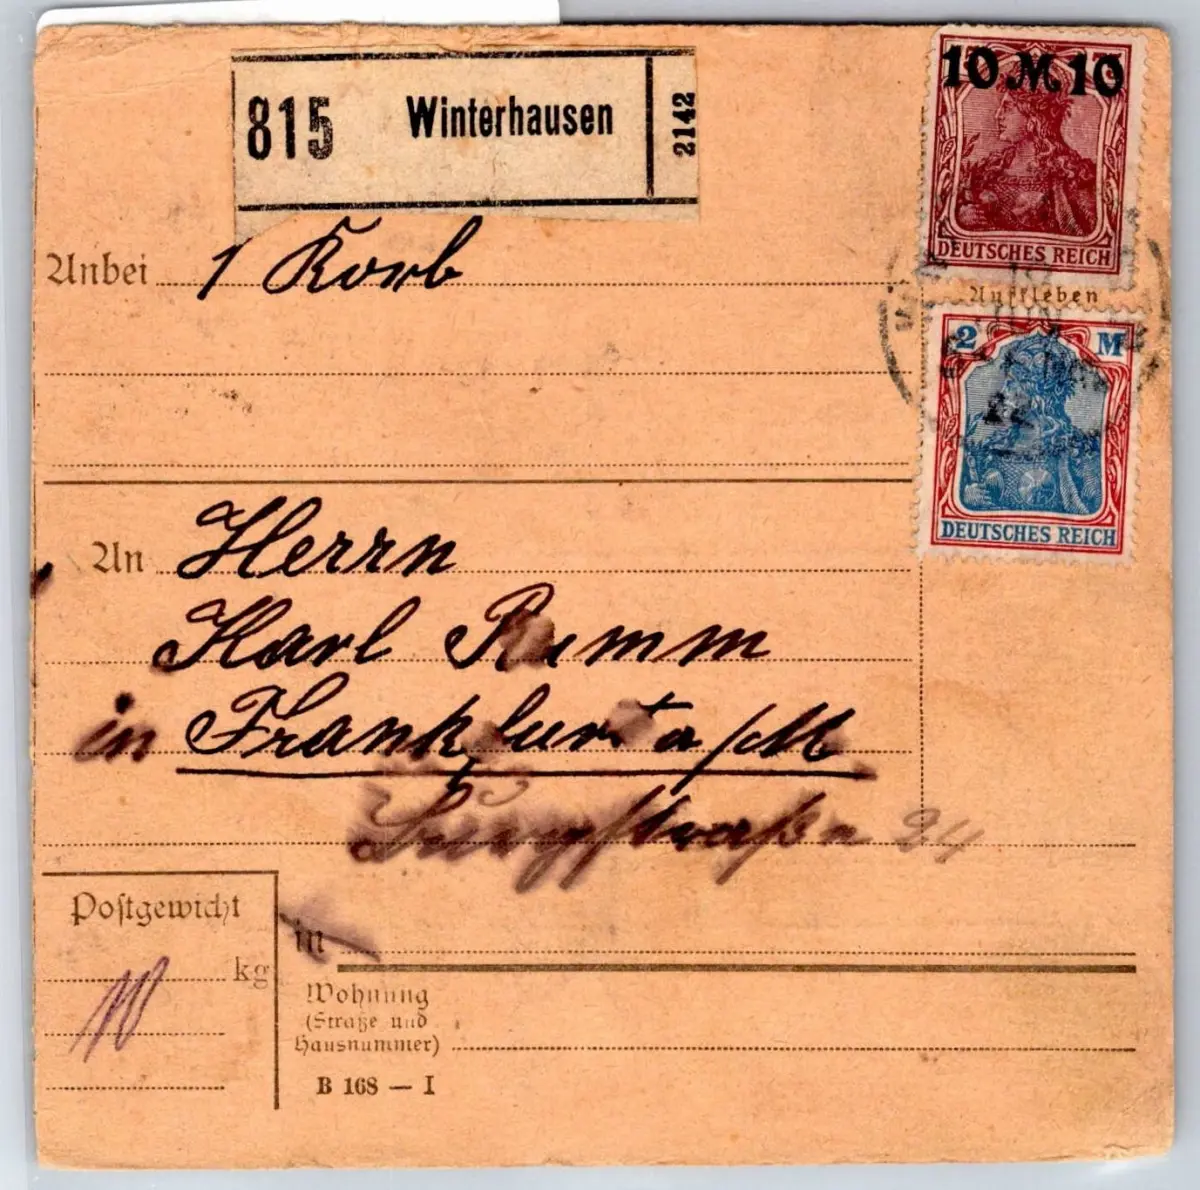 815 Winterhausen 2142
10 M 10
DEUTSCHES REICH
Anbei 1 Korb
Aufkleben
2 M
DEUTSCHES REICH
22
An Herrn
Karl Rumm
in Frankfurt a/M
34
Postgewicht
in
10 kg
Wohnung
(Straße und
Hausnummer)
B 168 — I